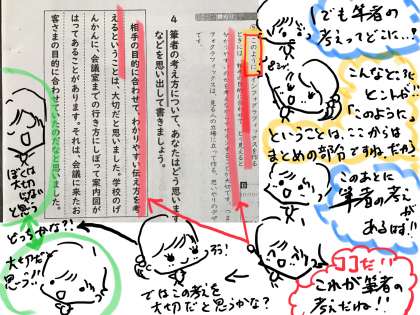 でも筆者の
考えってどこに…？
こんなときの
ヒントが!!
「このように」
ということは、ここからは
まとめの部分ですね、だから
このあとに
筆者の考えが
あるは!!
ココだ!!
これが筆者の
考えだね!!
そう!
ではこの考えを
大切だと思うかな?
どっちかな?!
大切だと
思う!!
ぼくは
大切じゃ
ないと思う
このように、インフォグラフィックスを作る
フォグラフィックスは、見る人の立場に立って作る、思いやりのデザ
4 筆者の考え方について、あなたはどう思います
などを思い出して書きましょう。
相手の目的に合わせて、わかりやすい伝え方を考
えるということは、大切だと思いました。学校のげ
んかんに、会議室までの行き方にしぼって案内図が
はってあることがあります。それは、会議に来たお
客さまの目的に合わせていたのだなと思いました。